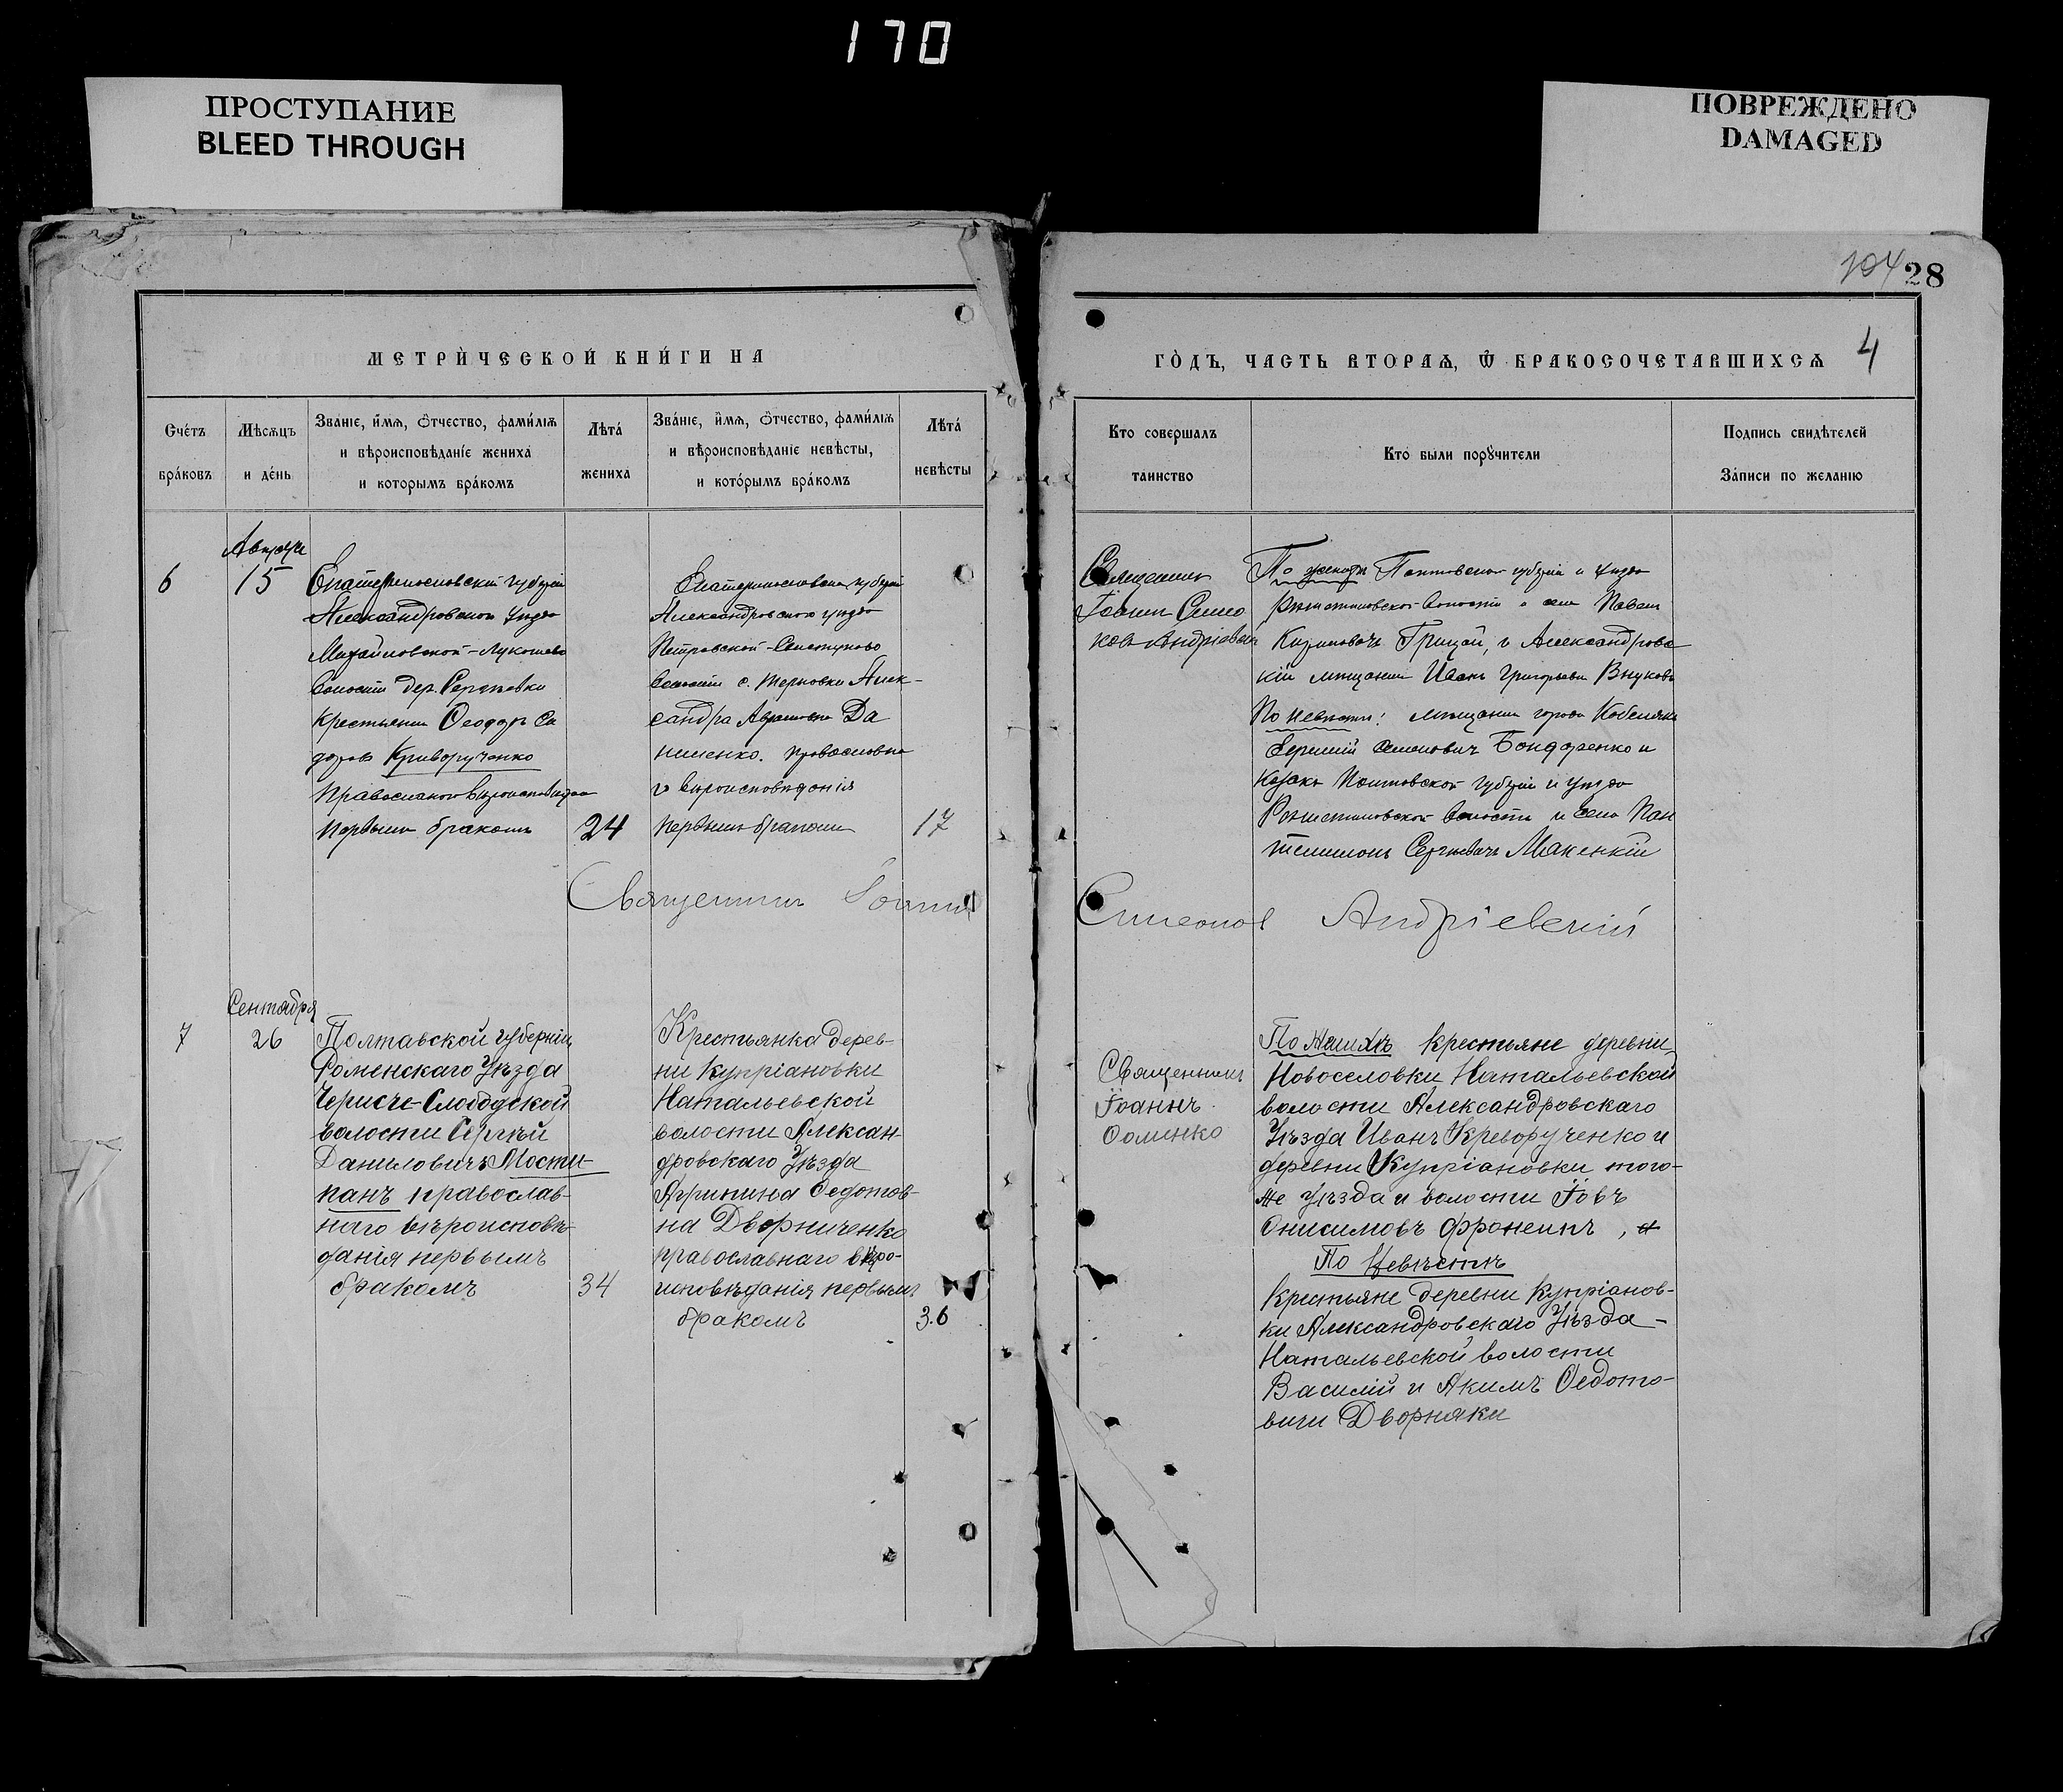 170
ПРОСТУПАНИЕ
BLEED THROUGH
ПОВРЕЖДЕНО
DAMAGED
104 28
МЕТРИ́ЧЕСКОЙ КНИ́ГИ НА
ГО́ДЪ, ЧАСТЬ ВТОРАѦ, Ѿ БРАКОСОЧЕТАВШИХСѦ 4
Сче́тъ
бра́ковъ
Мѣсѧцъ
и де́нь
Зва́нїе, и́мѧ, ѻ́тчество, фами́лїѧ
и вѣроисповѣ́данїе жениха̀
и кото́рымъ бра́комъ
Лѣта́
жениха
Зва́нїе, и́мѧ, ѻ́тчество, фами́лїѧ
и вѣроисповѣ́данїе невѣ́сты,
и кото́рымъ бра́комъ
Лѣта́
невѣ́сты
Кто совершалъ
таинство
Кто были порꙋчители
Подпись свидѣтелей
За́писи по желанїю
6
15
Екатеринославской губерніи
Александровскаго уѣзда
Михайловской-Лукашево
волости дер.
крестьянин Ѳеодоръ Си
доровъ Криворученко
православнаго вѣроисповѣдан
первымъ бракомъ
24
Екатеринославской губерніи
Александровскаго уѣзда
Петровской-
волости с. Терновки Алек-
сандра Авраамовна Да
ниленко. православна
го вѣроисповѣданія
первымъ бракомъ
17
Священник
Іоанн Симео
нов Андріевскій
По женихѣ Полтавской губерніи и уѣзда
Рѣшетиловской волости и села Павел
Грицай, и Александровс
кій мѣщанин Иванъ Григорьевъ Внуковъ
По невѣстѣ: мѣщанин города Кобеляки
Семенович Бондаренко и
козакъ Полтавской губерніи и уѣзда
Рѣшетиловской волости и села Пан
телимонъ Сергѣевичъ
Священникъ Іоаннъ
Симеонов Андріевскій
Сентября
7
26
Полтавской губерніи
Роменскаго Уѣзда
Слободской
волости Сергѣй
Даниловичъ Мости-
панъ православ-
наго вѣроисповѣ-
данія первымъ
бракомъ
34
Крестьянка дерев-
ни Купріановки
Натальевской
волости Алексан-
дровскаго Уѣзда
Агрипина Ѳедотов-
на Дворниченко
православнаго вѣро-
исповѣданія первымъ
бракомъ
36
Священникъ
Іоаннъ
Ѳоменко
По Женихѣ крестьяне деревни
Новоселовки Натальевской
волости Александровскаго
Уѣзда Иванъ Креворученко и
деревни Купріановки того-
же уѣзда и волости Іовъ
Онисимовъ
По Невѣстѣ
Крестьяне деревни Купріанов-
ки Александровскаго Уѣзда-
Натальевской волости
Василій и Акимъ Ѳедото-
вичи Дворняки